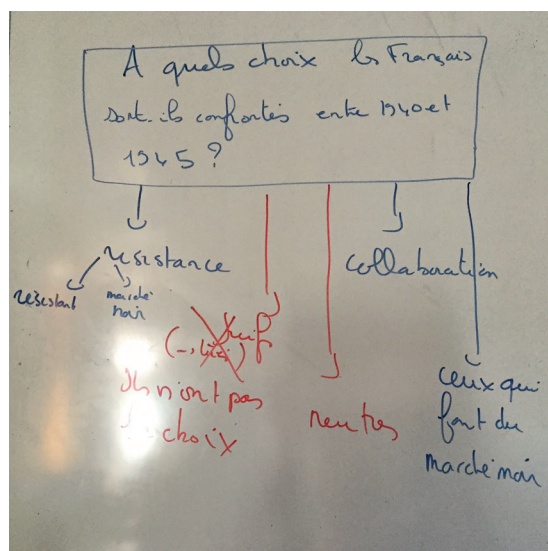 A quels choix les Français
sont-ils confrontés entre 1940 et
1945 ?
résistance
collaboration
résistant
marché
noir
juif
ils n'ont pas
choix
neutres
ceux qui
font du
marché noir